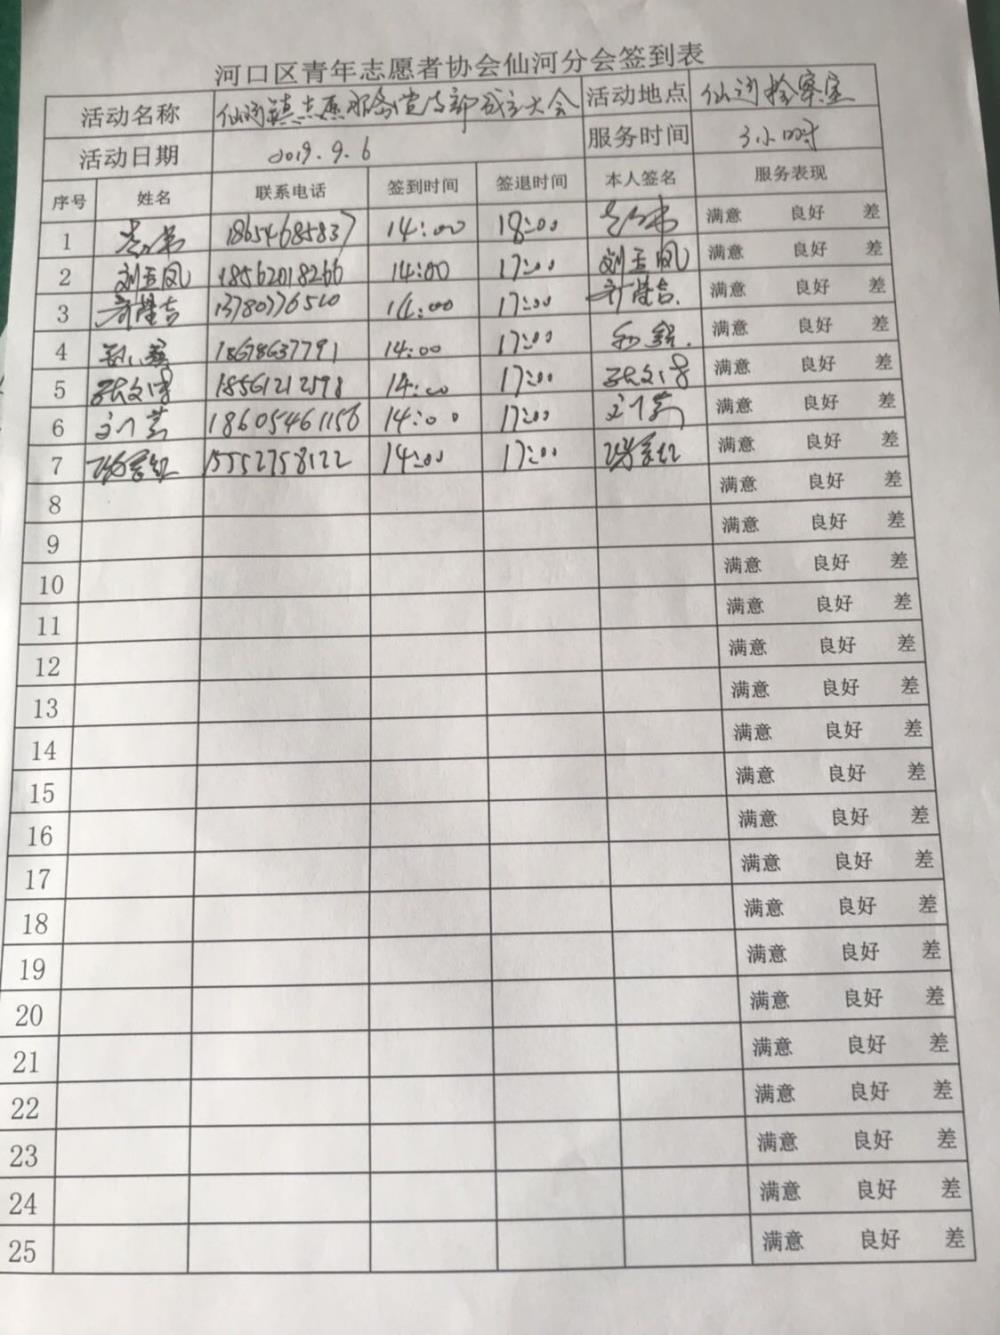 河口区青年志愿者协会仙河分会签到表
活动名称 仙河镇志愿服务党支部成立大会 活动地点 仙河检察室
活动日期 2019.9.6 服务时间 3小时
序号 姓名 联系电话 签到时间 签退时间 本人签名 服务表现
1 18654685837 14:00 18:00 满意 良好 差
2 刘玉凤 18562018266 14:00 17:00 刘玉凤 满意 良好 差
3 13780776510 14:00 17:00 满意 良好 差
4 18678637791 14:00 17:00 满意 良好 差
5 18561212598 14:00 17:00 满意 良好 差
6 18605461156 14:00 17:00 满意 良好 差
7 15552758122 14:00 17:00 满意 良好 差
8 满意 良好 差
9 满意 良好 差
10 满意 良好 差
11 满意 良好 差
12 满意 良好 差
13 满意 良好 差
14 满意 良好 差
15 满意 良好 差
16 满意 良好 差
17 满意 良好 差
18 满意 良好 差
19 满意 良好 差
20 满意 良好 差
21 满意 良好 差
22 满意 良好 差
23 满意 良好 差
24 满意 良好 差
25 满意 良好 差